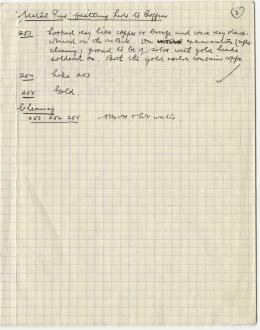 Metal Pins fastening lids to Coffins (2)
253 looked very like copper or bronze and were very black
on the outside. On examination (after
cleaning) proved to be of silver with gold heads
soldered on. Both the gold & silver contains copper.
254 Like 253
255 Gold
Cleaning
253 - 254 - 255 & hot water